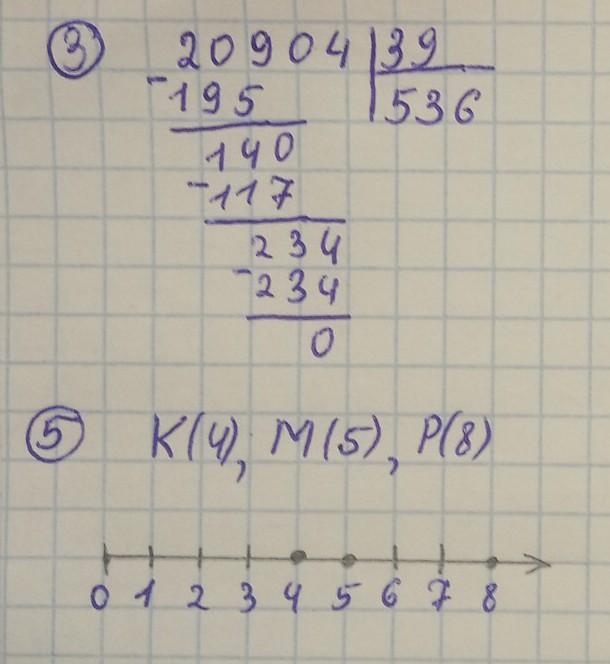 ③ 20904 | 39
- 195 | 536
140
- 117
234
- 234
0
⑤ K(4), M(5), P(8)
0 1 2 3 4 5 6 7 8